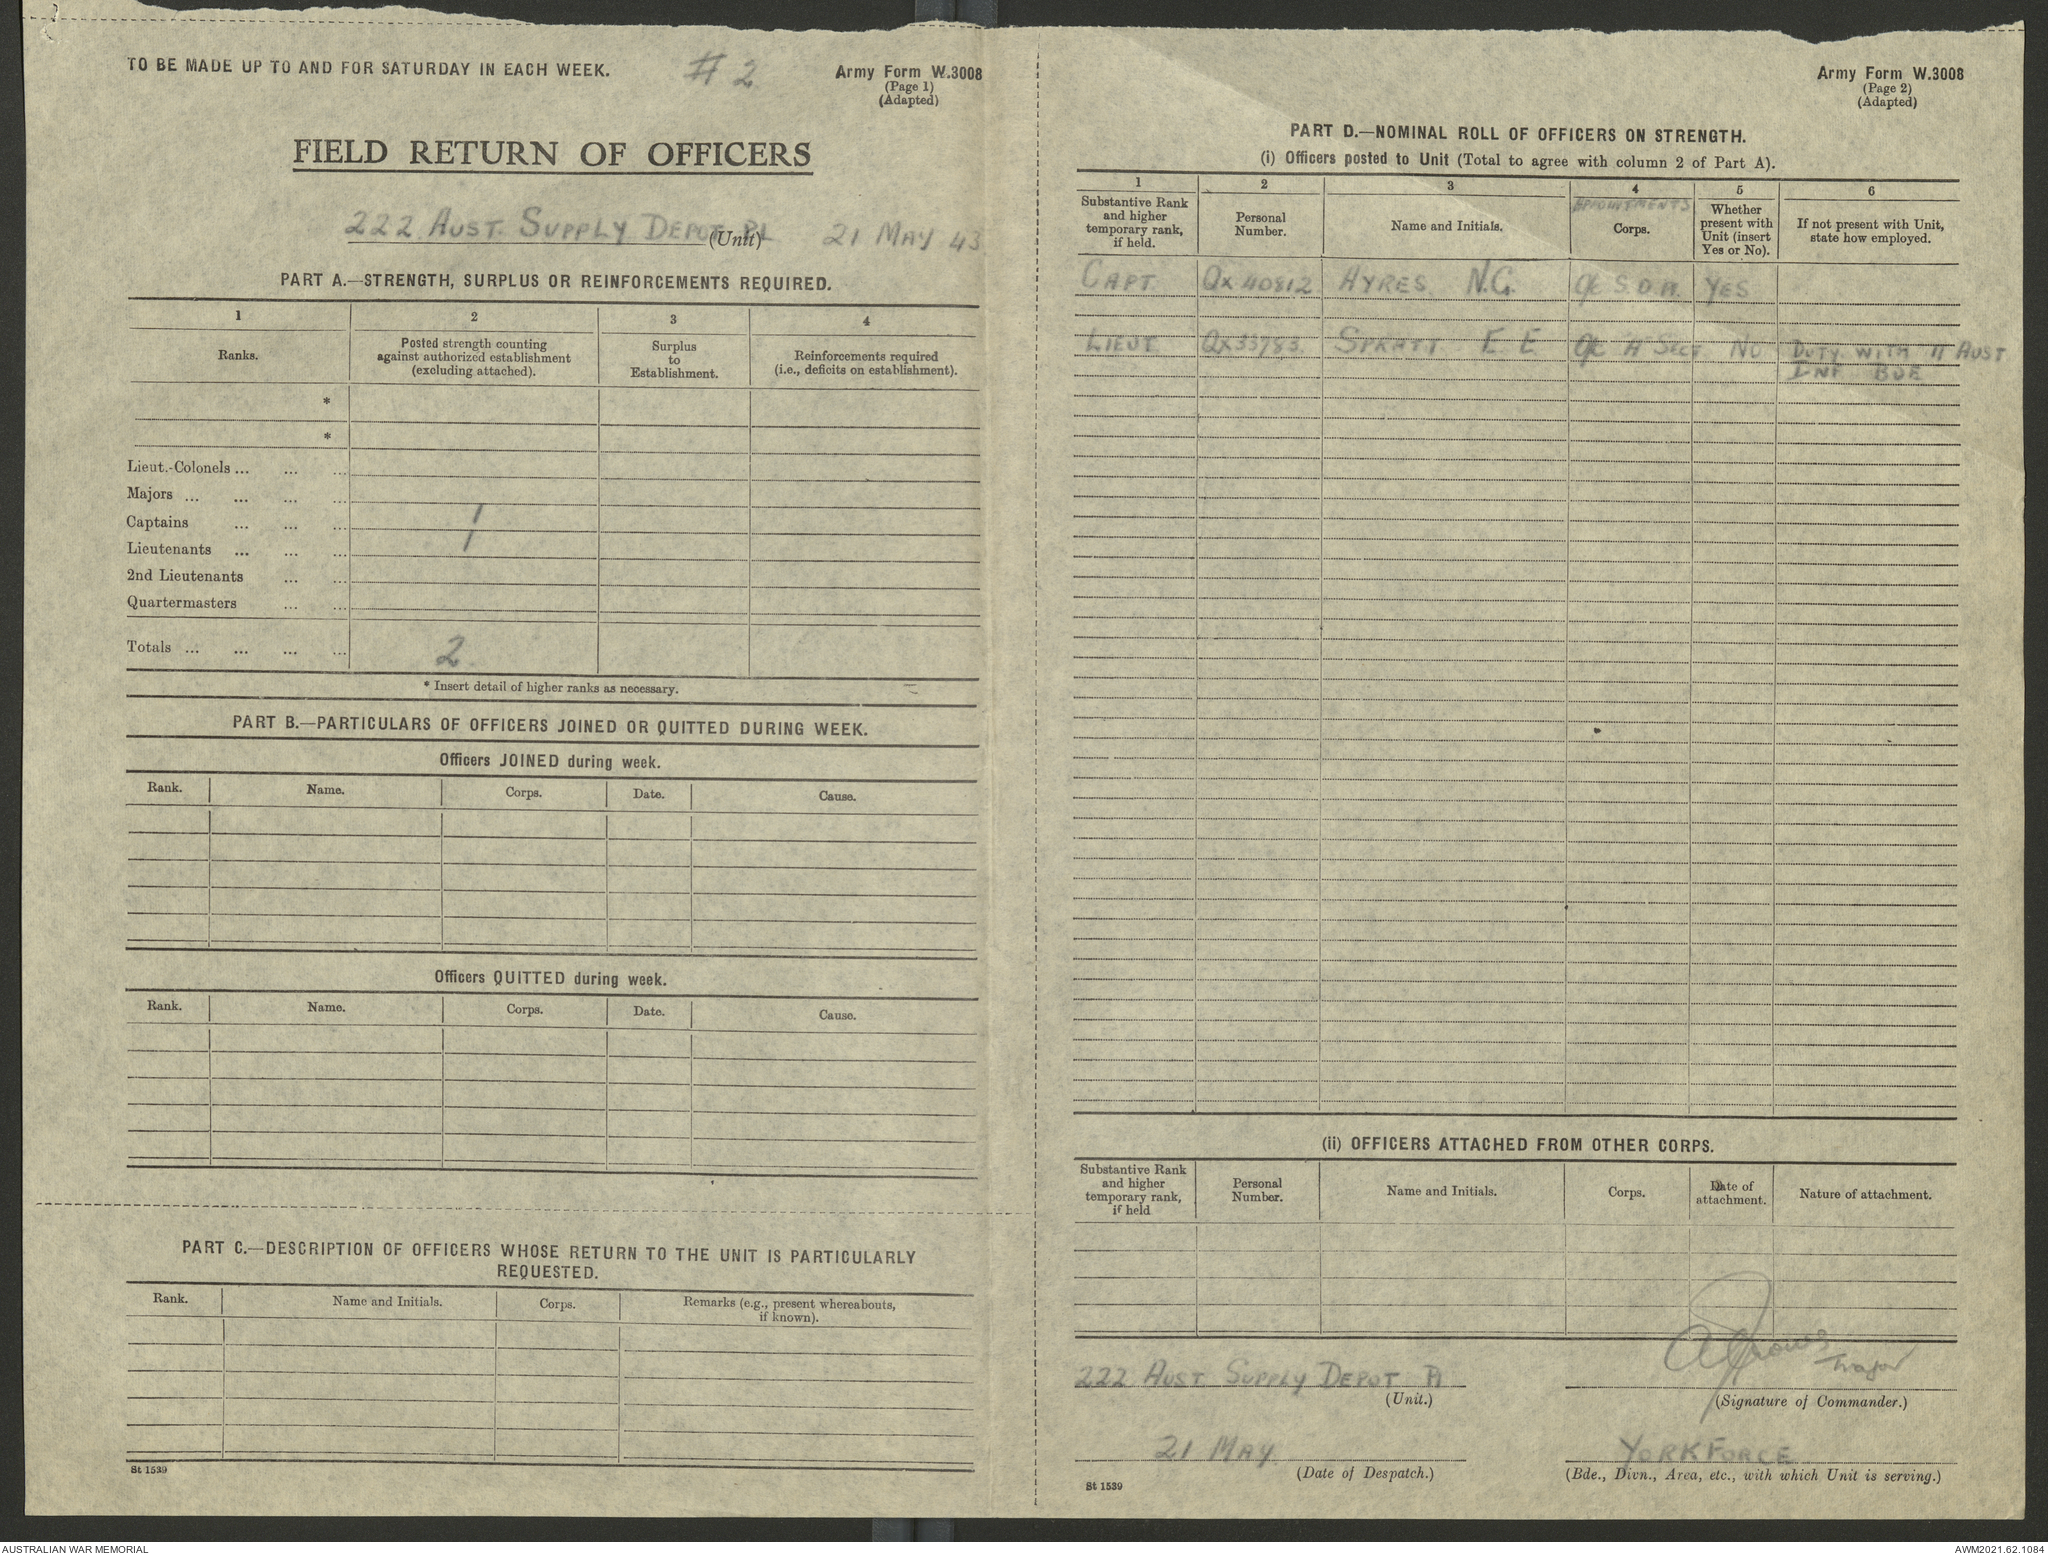 TO BE MADE UP TO AND FOR SATURDAY IN EACH WEEK.
# 2
Army Form W.3008
(Page 1)
(Adapted)
FIELD RETURN OF OFFICERS
222 AUST. SUPPLY DEPOT PL (Unit) 21 MAY 43
PART A.—STRENGTH, SURPLUS OR REINFORCEMENTS REQUIRED.
1 2 3 4
Ranks.
Posted strength counting
against authorized establishment
(excluding attached).
Surplus
to
Establishment.
Reinforcements required
(i.e., deficits on establishment).
*
*
Lieut.-Colonels ... ... ...
Majors ... ... ... ...
Captains ... ... ... 1
Lieutenants ... ... ... 1
2nd Lieutenants ... ...
Quartermasters ... ...
Totals ... ... ... ... 2
* Insert detail of higher ranks as necessary.
PART B.—PARTICULARS OF OFFICERS JOINED OR QUITTED DURING WEEK.
Officers JOINED during week.
Rank. Name. Corps. Date. Cause.
Officers QUITTED during week.
Rank. Name. Corps. Date. Cause.
PART C.—DESCRIPTION OF OFFICERS WHOSE RETURN TO THE UNIT IS PARTICULARLY
REQUESTED.
Rank. Name and Initials. Corps. Remarks (e.g., present whereabouts,
if known).
St 1539
Army Form W.3008
(Page 2)
(Adapted)
PART D.—NOMINAL ROLL OF OFFICERS ON STRENGTH.
(i) Officers posted to Unit (Total to agree with column 2 of Part A).
1 2 3 4 5 6
Substantive Rank
and higher
temporary rank,
if held.
Personal
Number.
Name and Initials.
APPOINTMENTS
Corps.
Whether
present with
Unit (insert
Yes or No).
If not present with Unit,
state how employed.
CAPT QX40812 AYRES N.G. OC S.D.P. YES
LIEUT QX33783 SPRATT E E OC A SECT NO DUTY WITH 11 AUST
INF BDE
(ii) OFFICERS ATTACHED FROM OTHER CORPS.
Substantive Rank
and higher
temporary rank,
if held
Personal
Number.
Name and Initials.
Corps.
Date of
attachment.
Nature of attachment.
222 AUST SUPPLY DEPOT Pl
(Unit.)
Major
(Signature of Commander.)
21 MAY
(Date of Despatch.)
YORKFORCE
(Bde., Divn., Area, etc., with which Unit is serving.)
St 1539
AUSTRALIAN WAR MEMORIAL
AWM2021.62.1084